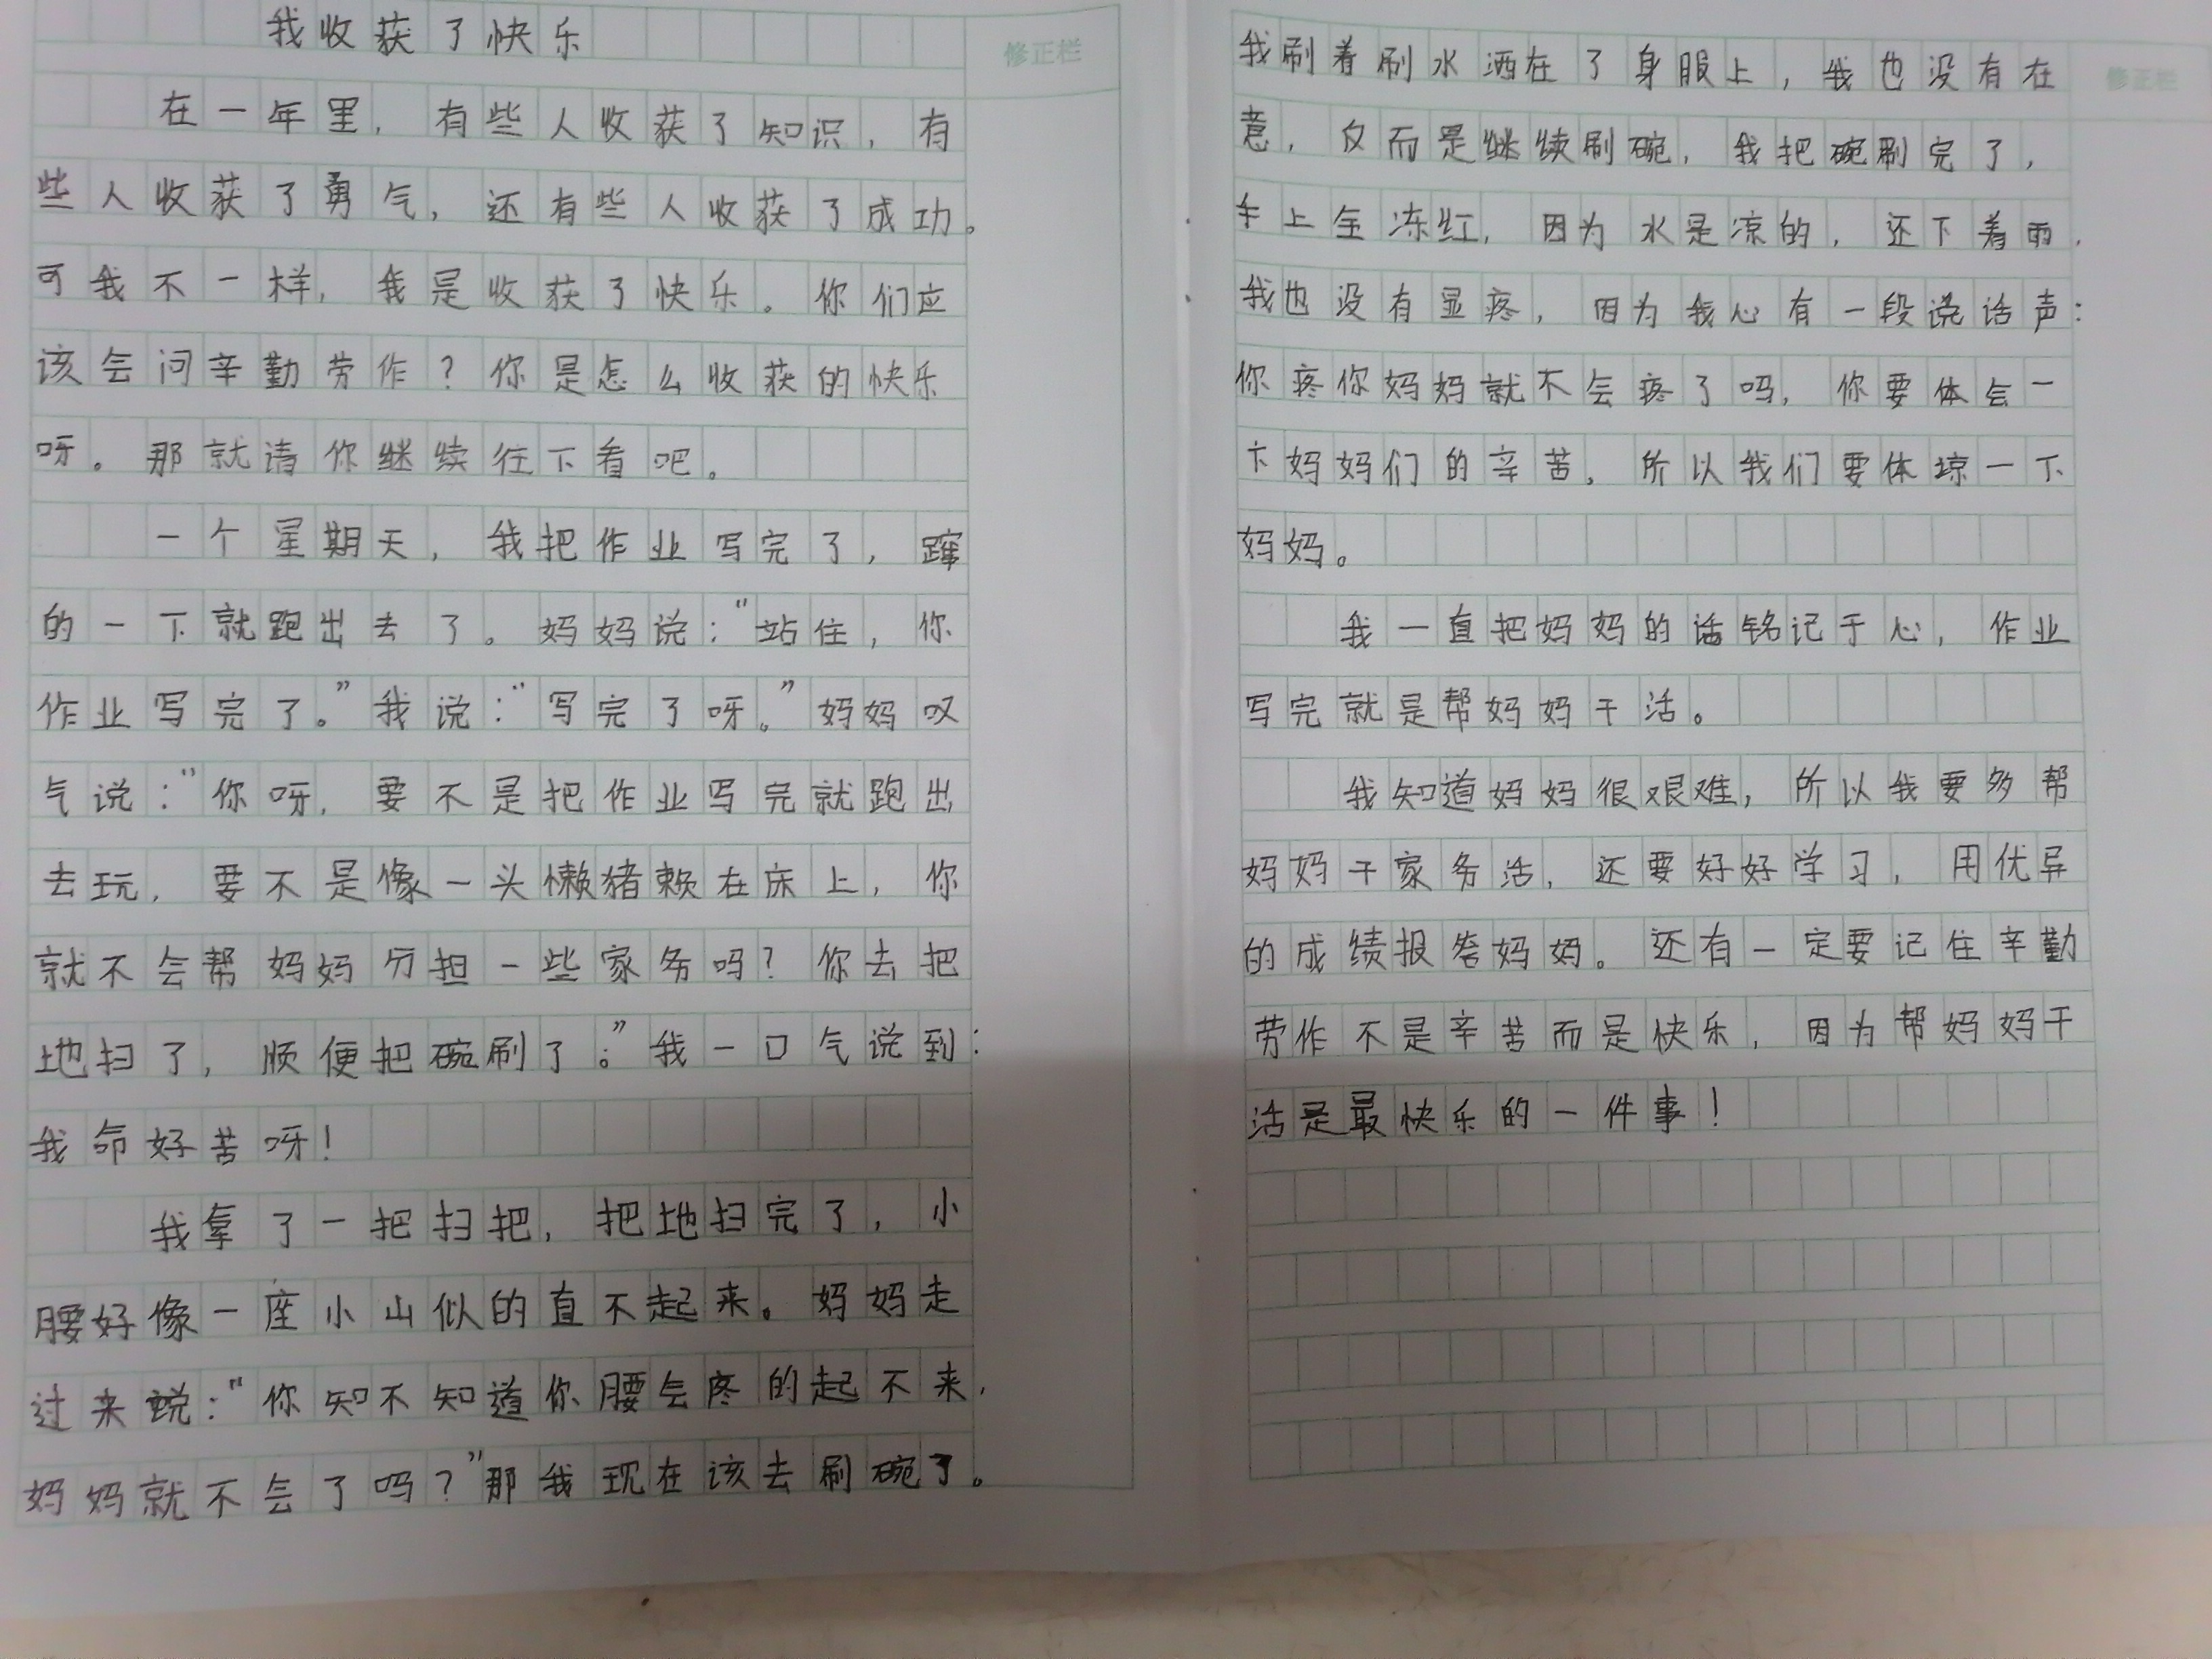 我收获了快乐
修正栏
在一年里,有些人收获了知识,有
些人收获了勇气,还有些人收获了成功。
可我不一样,我是收获了快乐。你们应
该会问辛勤劳作?你是怎么收获的快乐
呀。那就请你继续往下看吧。
一个星期天,我把作业写完了,蹿
的一下就跑出去了。妈妈说:“站住,你
作业写完了。”我说:“写完了呀。”妈妈叹
气说:“你呀,要不是把作业写完就跑出
去玩,要不是像一头懒猪赖在床上,你
就不会帮妈妈分担一些家务吗?你去把
地扫了,顺便把碗刷了。”我一口气说到:
我命好苦呀!
我拿了一把扫把,把地扫完了,小
腰好像一座小山似的直不起来。妈妈走
过来说:“你知不知道你腰会疼的起不来,
妈妈就不会了吗?”那我现在该去刷碗了。
修正栏
我刷着刷水洒在了身服上,我也没有在
意,反而是继续刷碗,我把碗刷完了,
手上全冻红,因为水是凉的,还下着雨,
我也没有显疼,因为我心有一段说话声:
你疼你妈妈就不会疼了吗,你要体会一
下妈妈们的辛苦,所以我们要体谅一下
妈妈。
我一直把妈妈的话铭记于心,作业
写完就是帮妈妈干活。
我知道妈妈很艰难,所以我要多帮
妈妈干家务活,还要好好学习,用优异
的成绩报答妈妈。还有一定要记住辛勤
劳作不是辛苦而是快乐,因为帮妈妈干
活是最快乐的一件事!